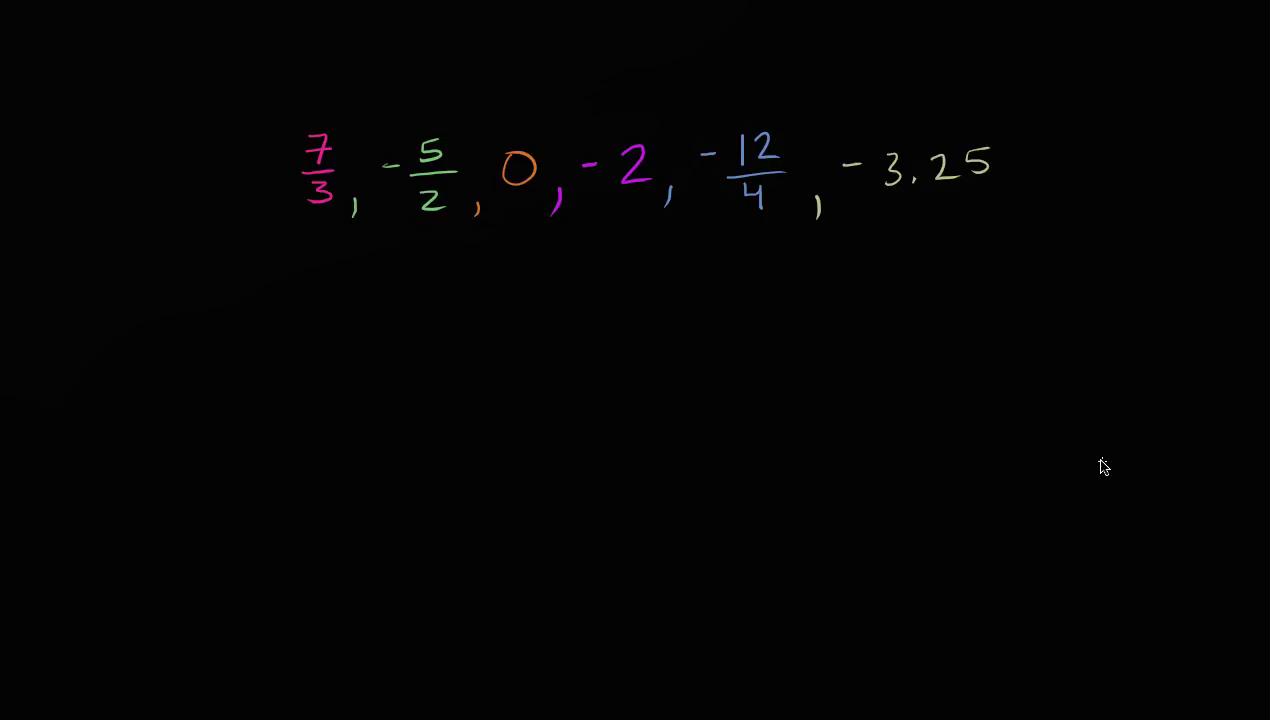 7/3, -5/2, 0, -2, -12/4, -3.25